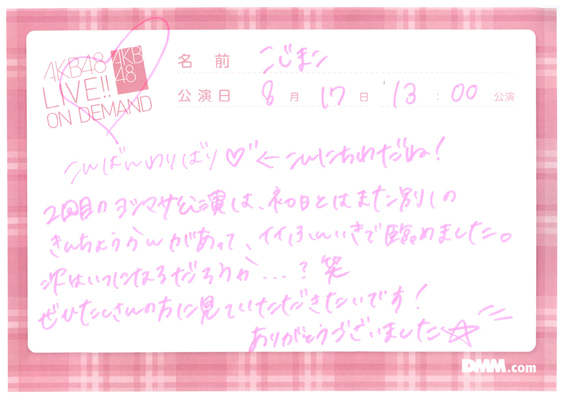 AKB48
LIVE!!
ON DEMAND
AKB
48
名 前 こじまこ
公演日 8 月 17 日 13 : 00 公演
こんばんわりばり♡" ←こんにちわだね!
2回目のヨシマサ公演は、初日とはまた別しの
きんちょうかんがあって、イイふんいきで臨めました。
次はいつになるだろうか...?笑
ぜひたくさんの方に見ていただきたいです!
ありがとうございました☆
DMM.com